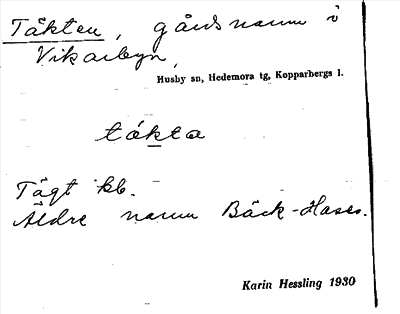 Täkten, gårdsnamn i
Vikarbyn,
Husby sn, Hedemora tg, Kopparbergs l.
tákta
Tägt kb.
Äldre namn Bäck-Hases.
Karin Hessling 1930